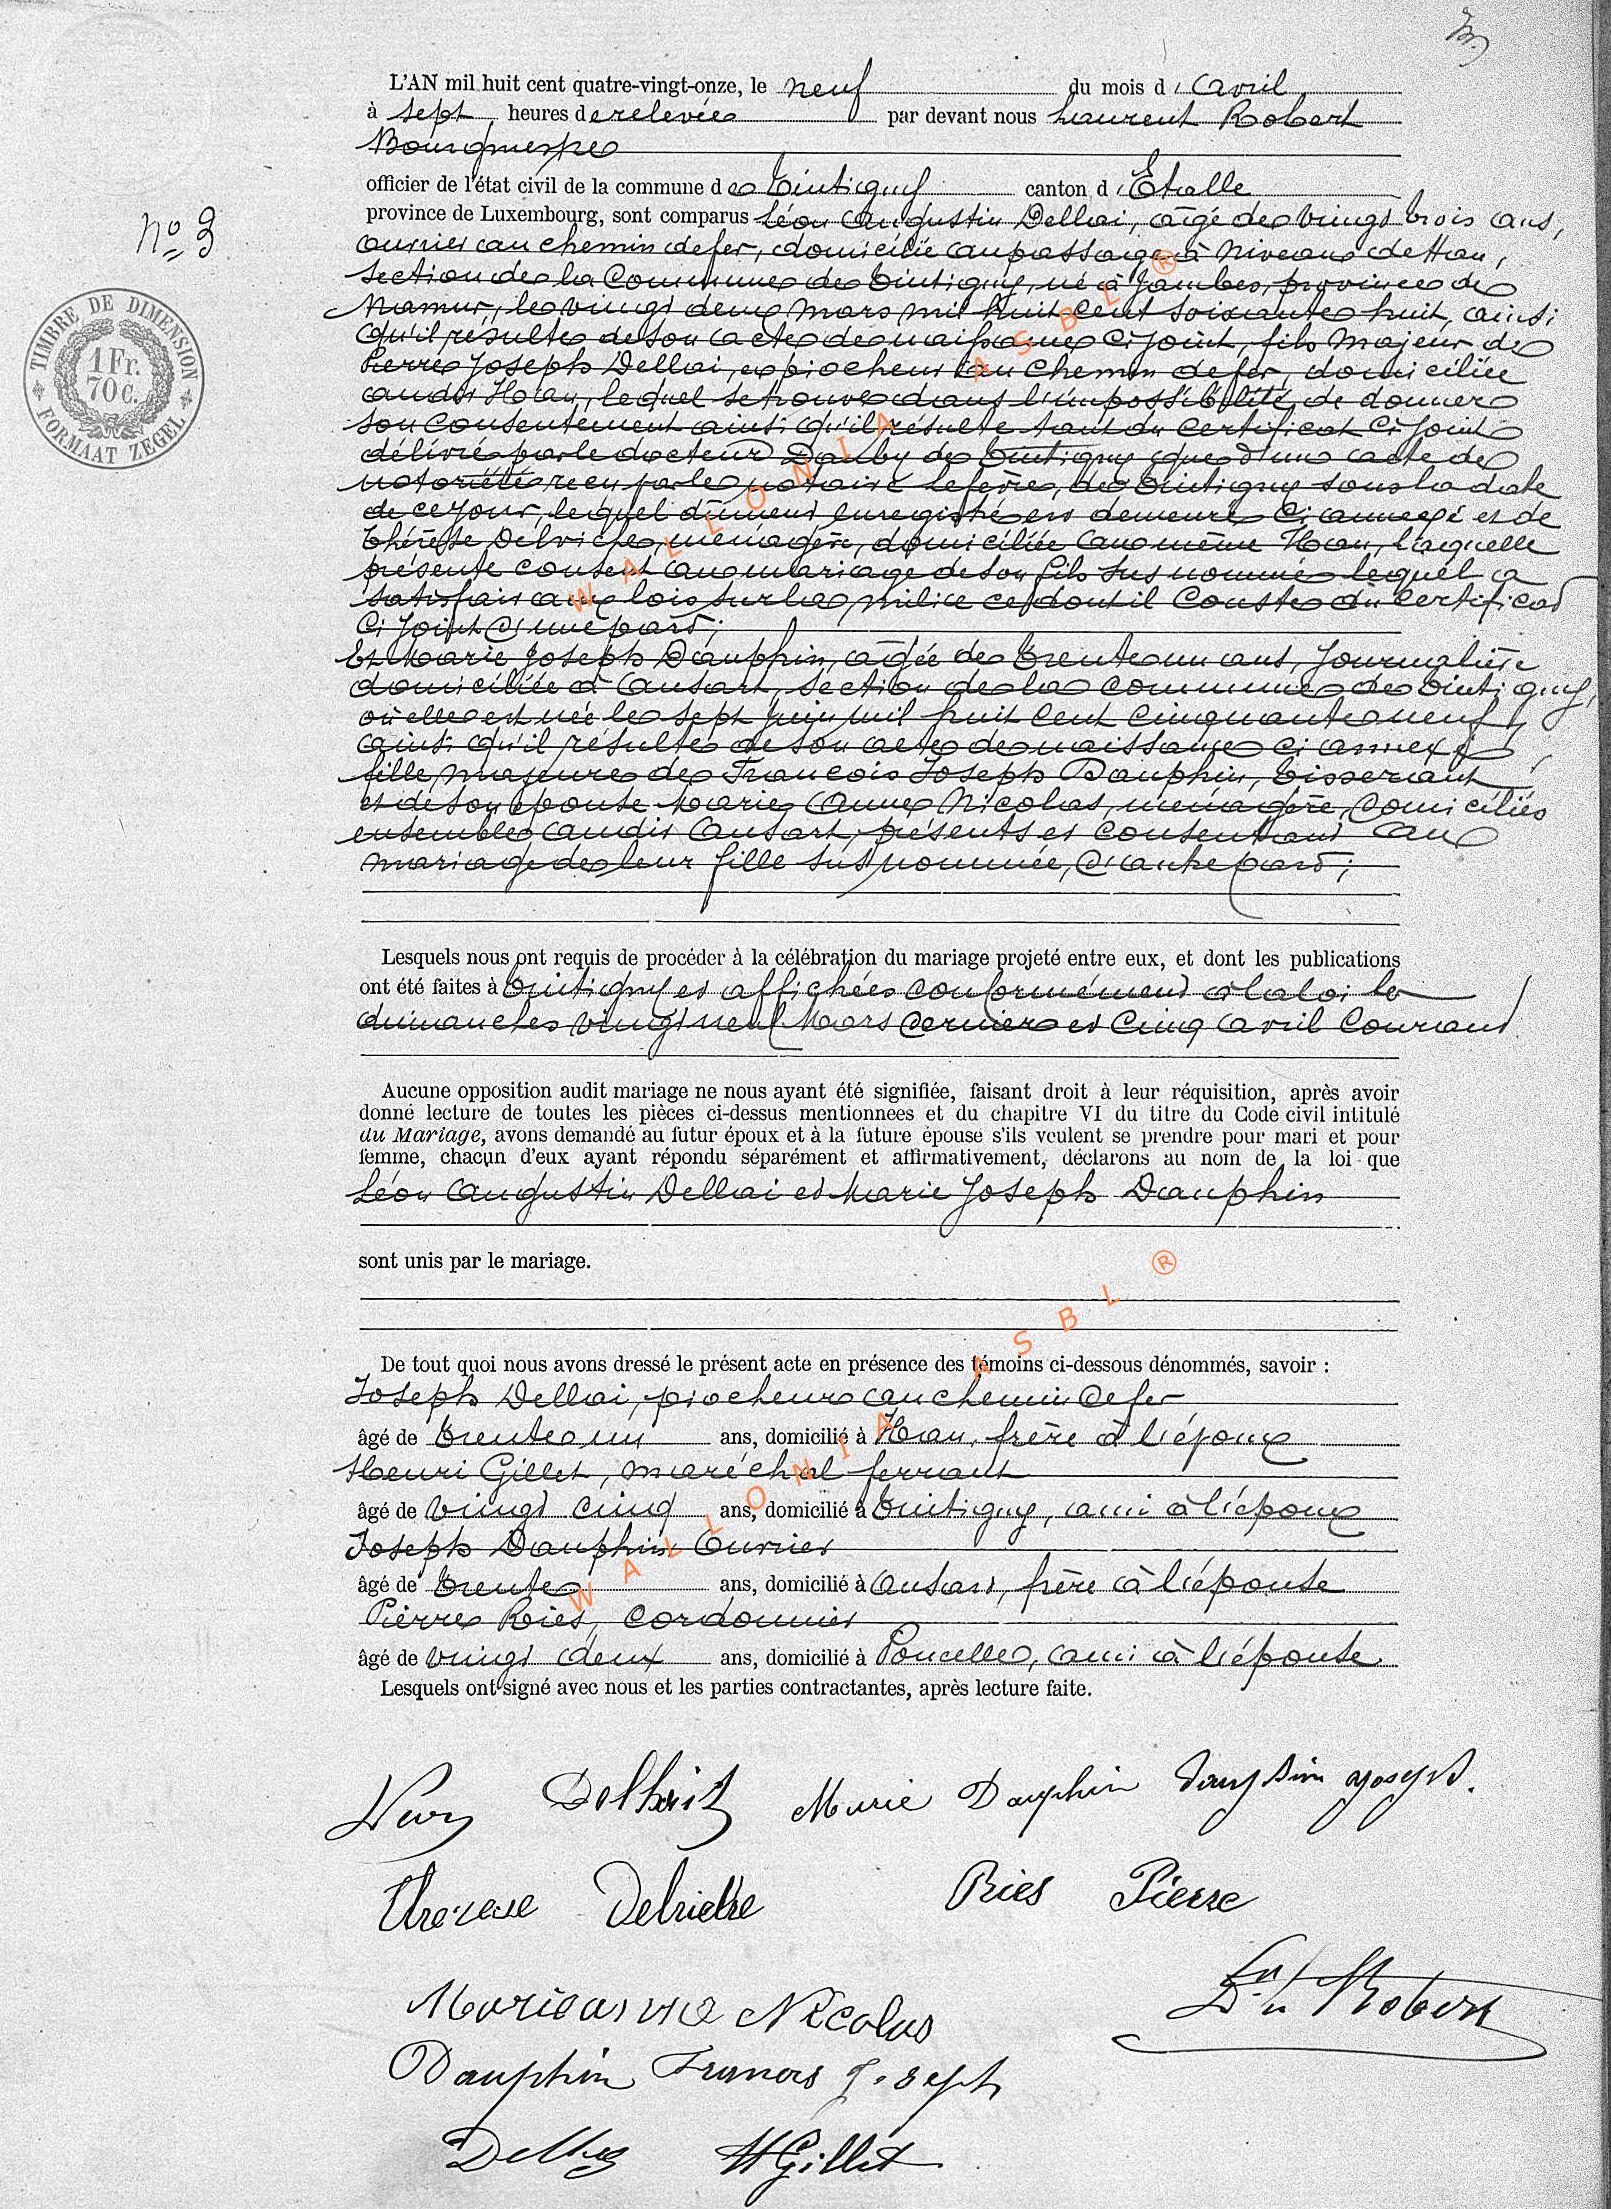 L'AN mil huit cent quatre-vingt-onze, le neuf du mois d'avril
à sept heures de relevée par devant nous Laurent Robert
Bourgmestre
officier de l'état civil de la commune de Tintigny canton d'Etalle
province de Luxembourg, sont comparus Léon Augustin Delhai, âgé de vingt trois ans,
ouvrier au chemin de fer, domicilié au passage à niveau de Han,
section de la Commune de Tintigny, né à Jambes, province de
Namur, le vingt deux mars mil huit cent soixante huit, ainsi
qu'il résulte de son acte de naissance ci joint, fils majeur de
Pierre Joseph Delhai, piocheur au chemin de fer, domicilié
audit Han, lequel se trouve dans l'impossibilité de donner
son consentement ainsi qu'il résulte tant du certificat ci joint
délivré par le docteur Dauby de Tintigny que d'un acte de
notoriété reçu par le notaire Lefèvre, de Tintigny sous la date
de ce jour, lequel dûment enregistré est demeuré ci annexé et de
Thérèse Delvick, ménagère, domiciliée au même Han, laquelle
présente consent au mariage de son fils sus nommé lequel a
satisfait aux lois sur la milice ce dont il conste du certificat
ci joint d'une part;
Et Marie Joseph Dauphin, âgée de trente un ans, journalière
domiciliée à Ansart, section de la commune de Tintigny,
où elle est née le sept juin mil huit cent cinquante neuf
ainsi qu'il résulte de son acte de naissance ci annexé,
fille majeure de François Joseph Dauphin, tisserant
et de son épouse Marie Anne Nicolas, ménagère, domiciliés
ensemble audit Ansart, présents et consentant au
mariage de leur fille sus nommée, d'autre part;
Lesquels nous ont requis de procéder à la célébration du mariage projeté entre eux, et dont les publications
ont été faites à Tintigny et affichées conformément à la loi les
dimanches vingt neuf Mars dernier et cinq avril courant
Aucune opposition audit mariage ne nous ayant été signifiée, faisant droit à leur réquisition, après avoir
donné lecture de toutes les pièces ci-dessus mentionnees et du chapitre VI du titre du Code civil intitulé
du Mariage, avons demandé au futur époux et à la future épouse s'ils veulent se prendre pour mari et pour
femme, chacun d'eux ayant répondu séparément et affirmativement, déclarons au nom de la loi que
Léon Augustin Delhai et Marie Joseph Dauphin
sont unis par le mariage.
De tout quoi nous avons dressé le présent acte en présence des témoins ci-dessous dénommés, savoir :
Joseph Delhai, piocheur au chemin de fer
âgé de trente un ans, domicilié à Han, frère à l'époux
Henri Gillet, maréchal ferrant
âgé de vingt cinq ans, domicilié à Tintigny, ami à l'époux
Joseph Dauphin Ouvrier
âgé de trente ans, domicilié à Ansart, frère à l'épouse
Pierre Ries, cordonnier
âgé de vingt deux ans, domicilié à Poncelle, ami à l'épouse
Lesquels ont signé avec nous et les parties contractantes, après lecture faite.
Marie Dauphin Dauphin Joseph.
Ries Pierre
Robert
Marie anne Nicolas
Dauphin Francois Joseph
HGillet
No 3
TIMBRE DE DIMENSION
1 Fr.
70 c.
FORMAAT ZEGEL
WALLONIA ASBL ®
WALLONIA ASBL ®